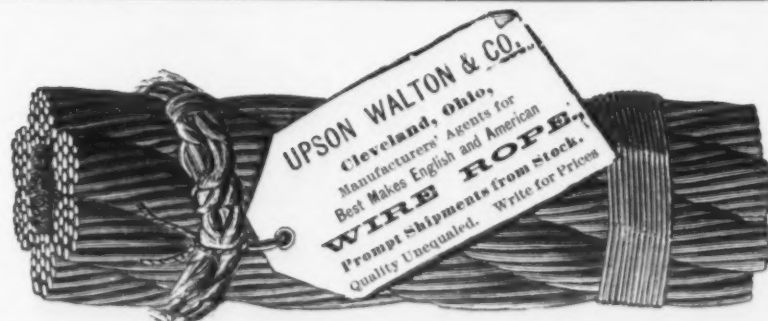 UPSON WALTON & CO.
Cleveland, Ohio,
Manufacturers' Agents for
Best Makes English and American
WIRE ROPE,
Prompt Shipments from Stock.
Quality Unequaled. Write for Prices